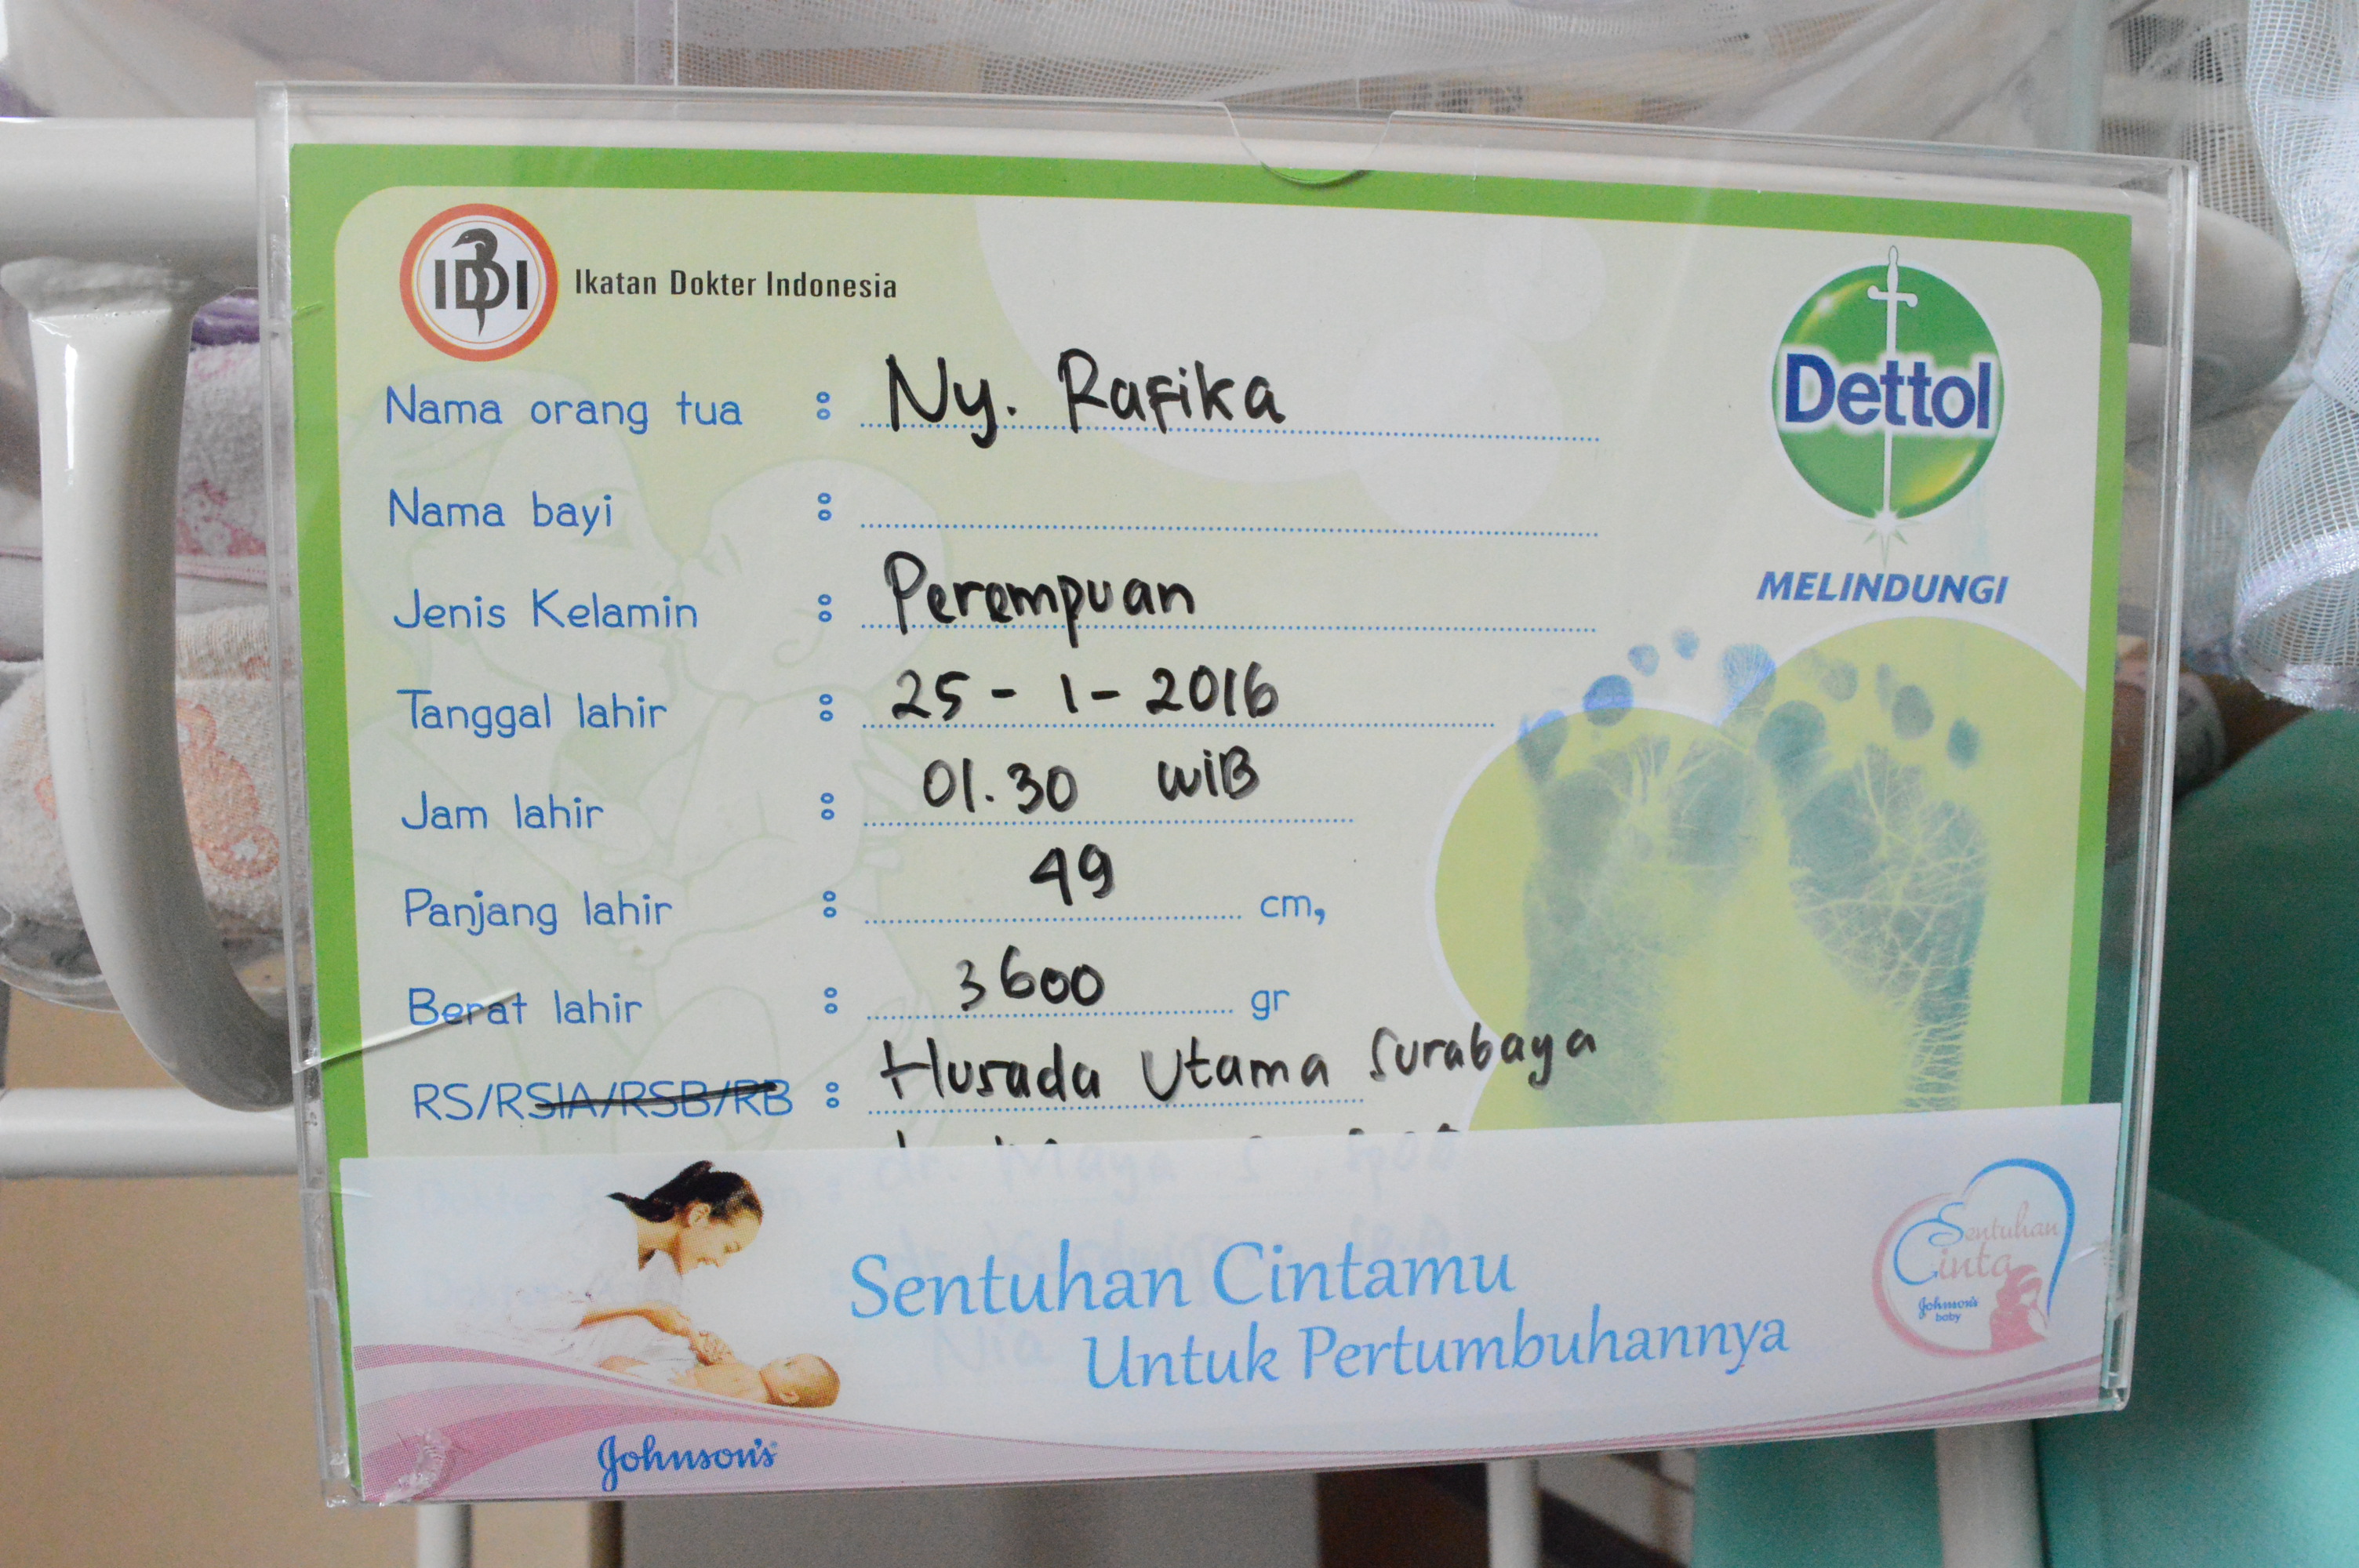 IDI Ikatan Dokter Indonesia
Dettol
MELINDUNGI
Nama orang tua : Ny. Rafika
Nama bayi :
Jenis Kelamin : Perempuan
Tanggal lahir : 25 - 1 - 2016
Jam lahir : 01.30 WIB
Panjang lahir : 49 cm,
Berat lahir : 3600 gr
RS/RSIA/RSB/RB : Husada Utama Surabaya
dr. Maya S. SpOG
Sentuhan Cintamu
Untuk Pertumbuhannya
Sentuhan
Cinta
Johnson's
baby
Nia
Johnson's